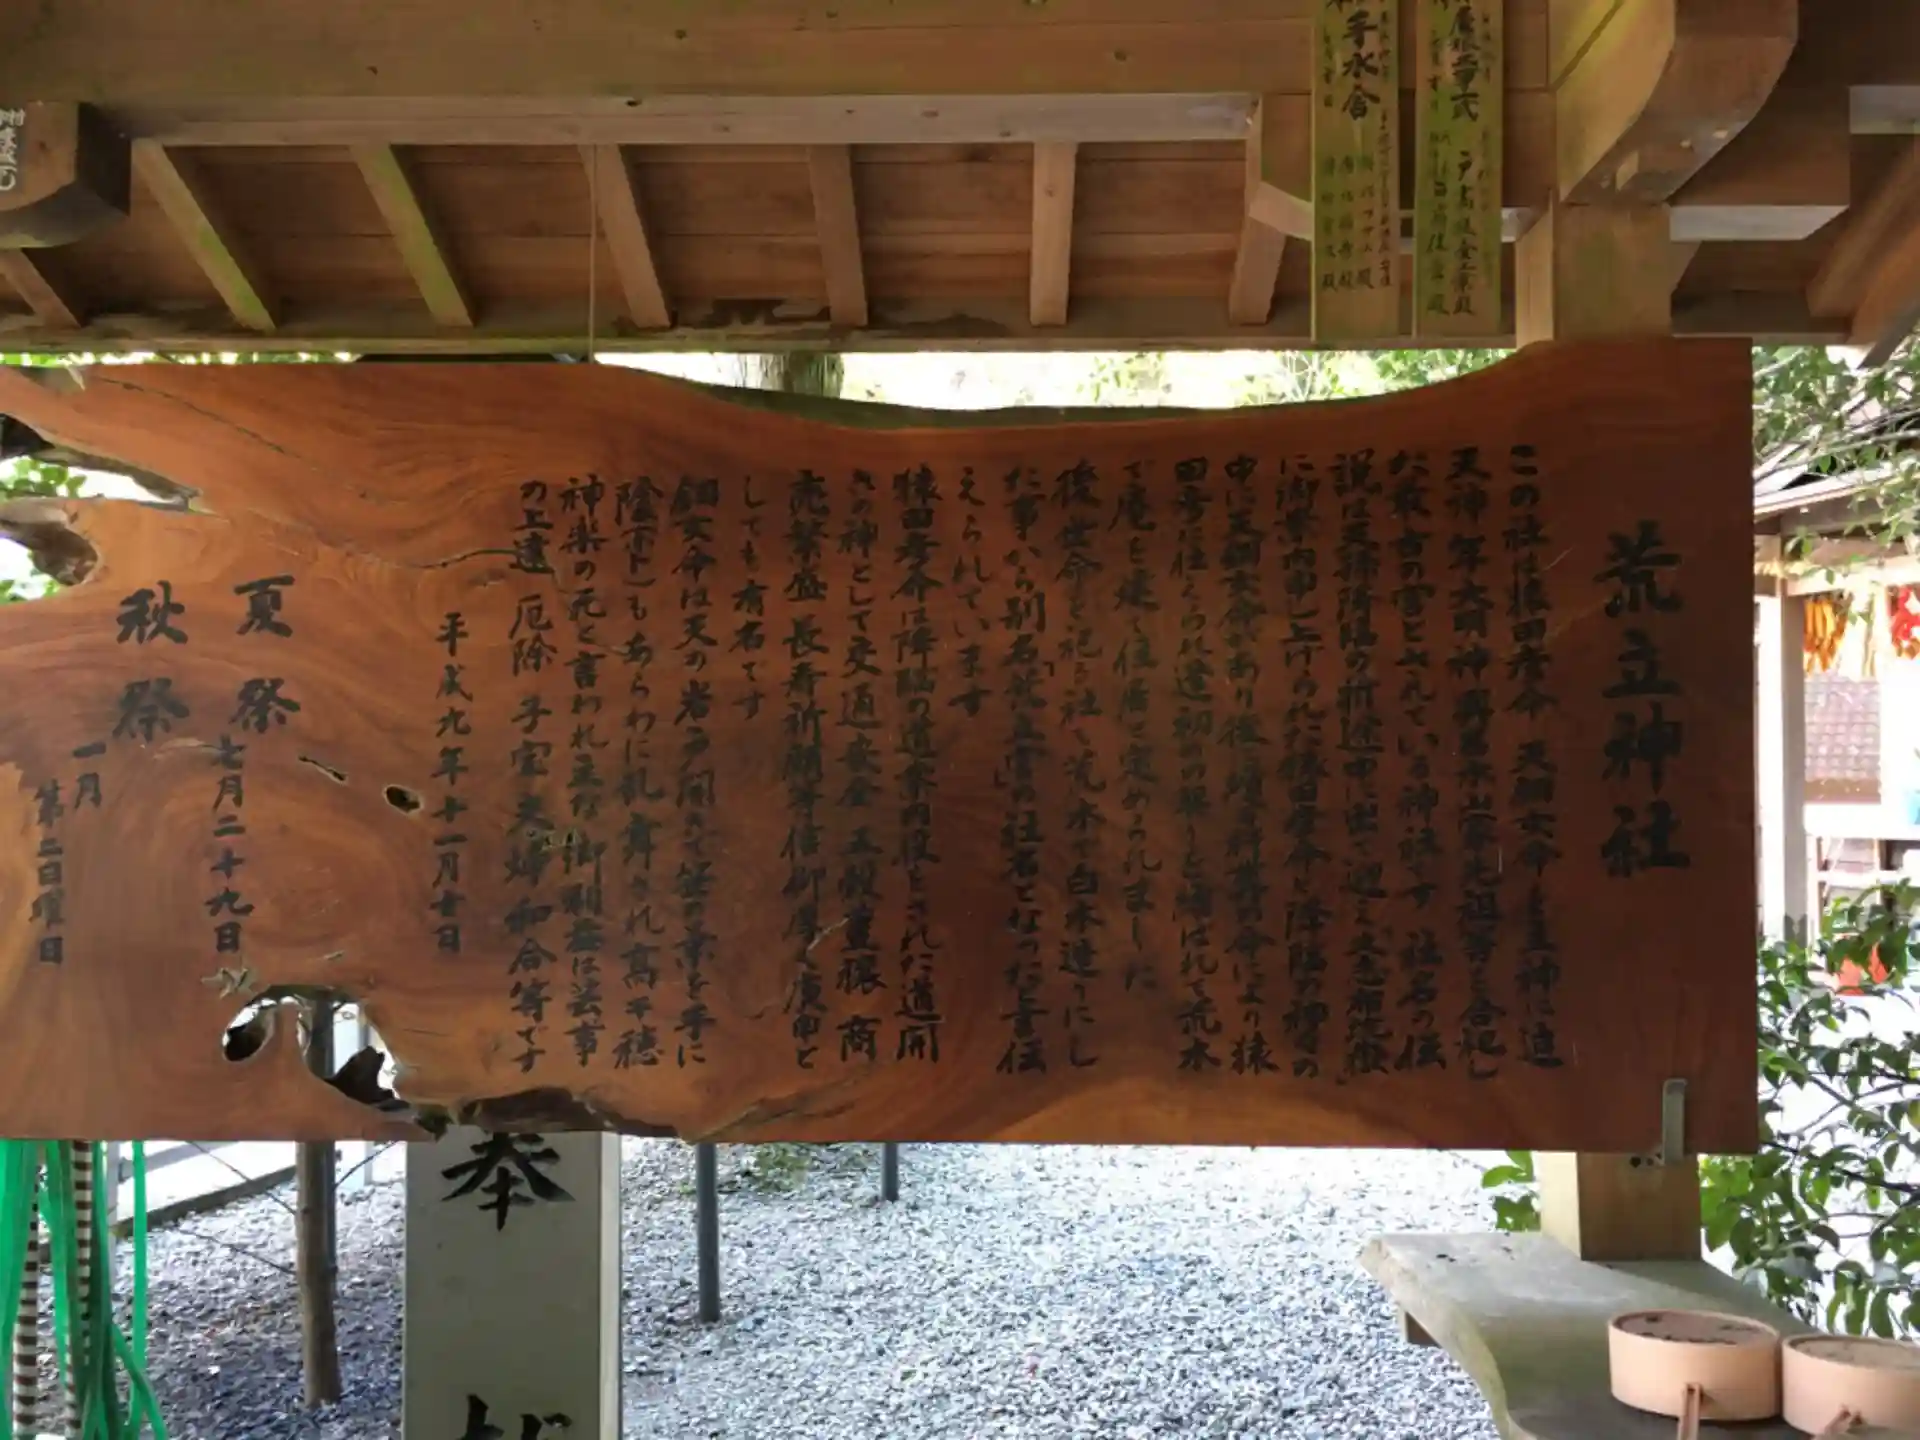 荒立神社
この社は猿田彦命 天鈿女命を主神に迫
天神 年大明神 興呂木山宗先祖等を合祀し
た最古の宮とされている神社です 社名の伝
説は天孫降臨の折途中に出て迎え
に御案内申し上げられた猿田彦命と降臨の神々の
中に天鈿女命があり後瓊々杵尊の命により猿
田彦に仕えられ遂初めの契りを結ばれて荒木
で庵を建て住居と定められました
後世命を祀る社で荒木で白木造りにし
た事から別名「荒立宮」の社名となったと言伝
えられています
猿田彦命は降臨の道案内役をされた道開
きの神として交通安全 五穀豊穣 商
売繁盛 長寿祈願等信仰厚く庚申と
しても有名です
鈿女命は天の岩戸開きで笹の葉を手に
陰(ホト)もあらわに乱舞され高千穂
神楽の元と言われ主な御利益は芸事
の上達 厄除 子宝夫婦和合等です
平成九年十一月十日
夏祭
七月二十九日
秋祭
一月
第二日曜日
手水舎
奉